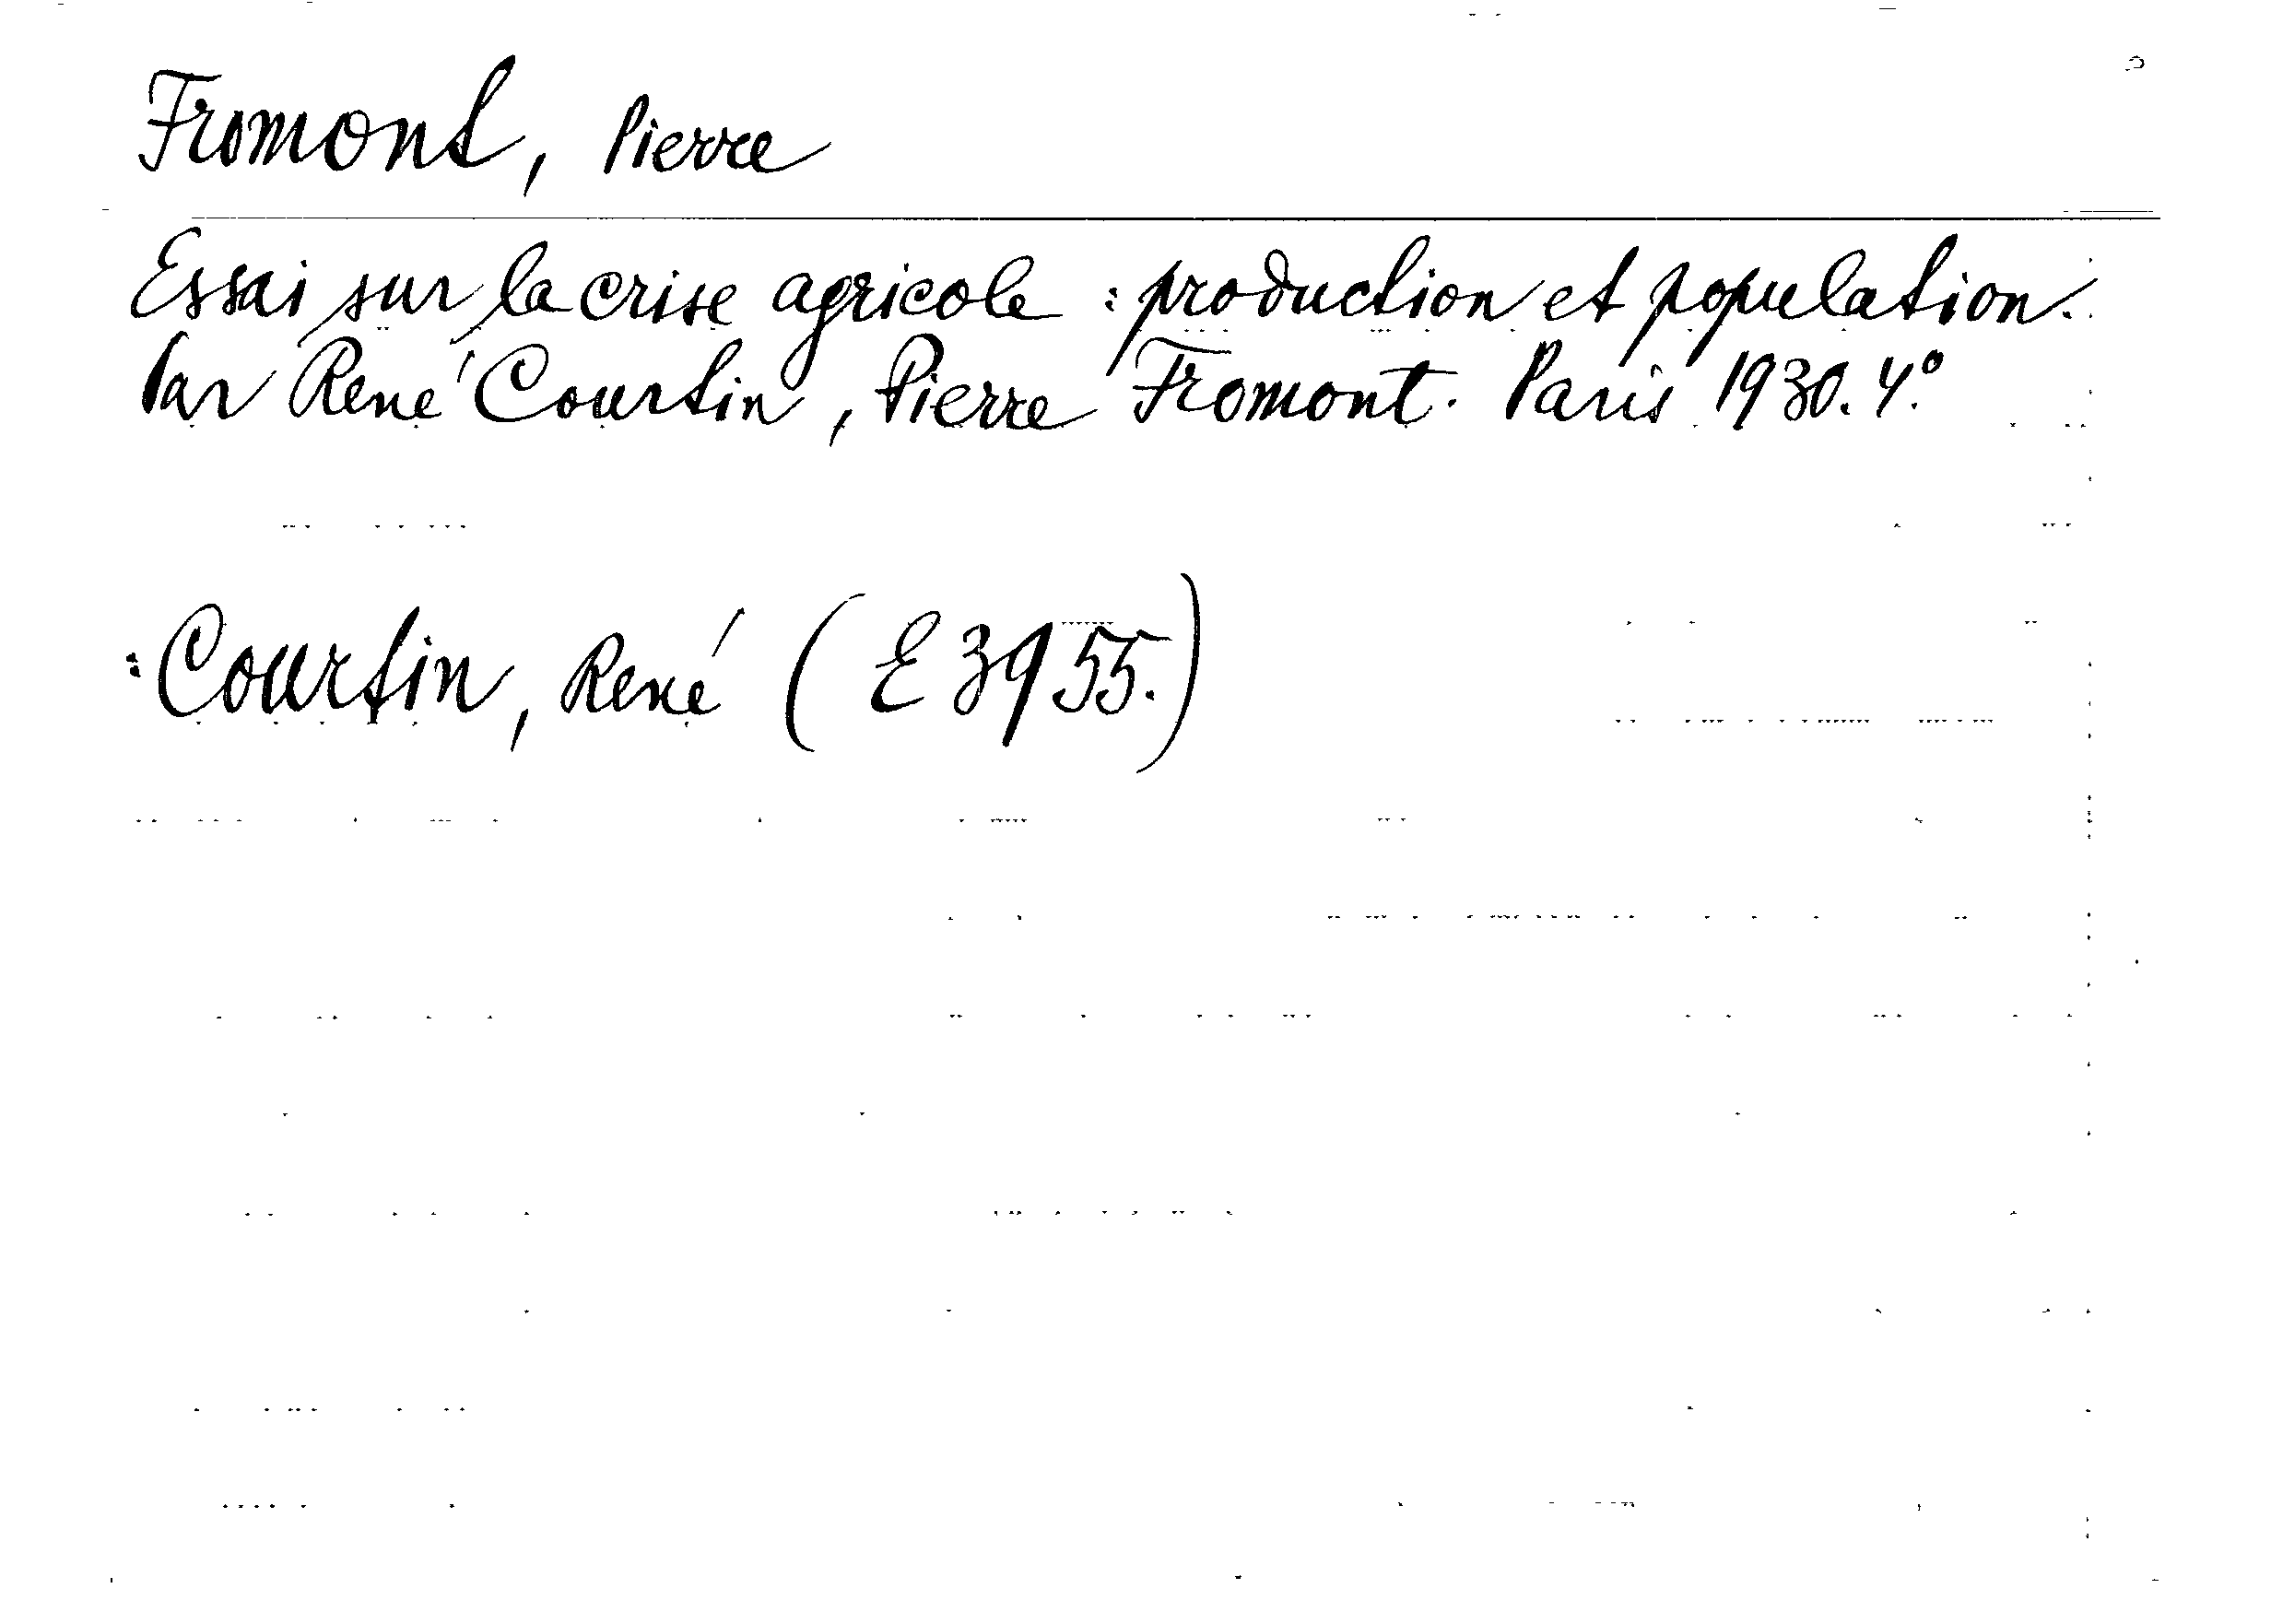 Fromont, Pierre
Essai sur la crise agricole : production et population.
Par René Courtin, Pierre Fromont. Paris 1930. 4°.
: Courtin, René (E 3955.)